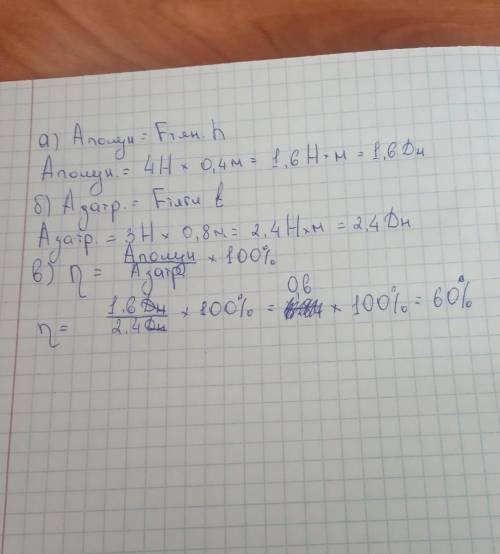 а) Аполун = Fтян. h
Аполун. = 4Н × 0,4м = 1,6 Н×м = 1,6 Дн
б) Азатр. = Fтяги ℓ
Азатр. = 3Н × 0,8м = 2,4 Н×м = 2,4 Дн
в) η = Аполун / Азатр × 100%
η = 1.6 Дн / 2.4 Дн × 100% = 0,6 × 100% = 60%